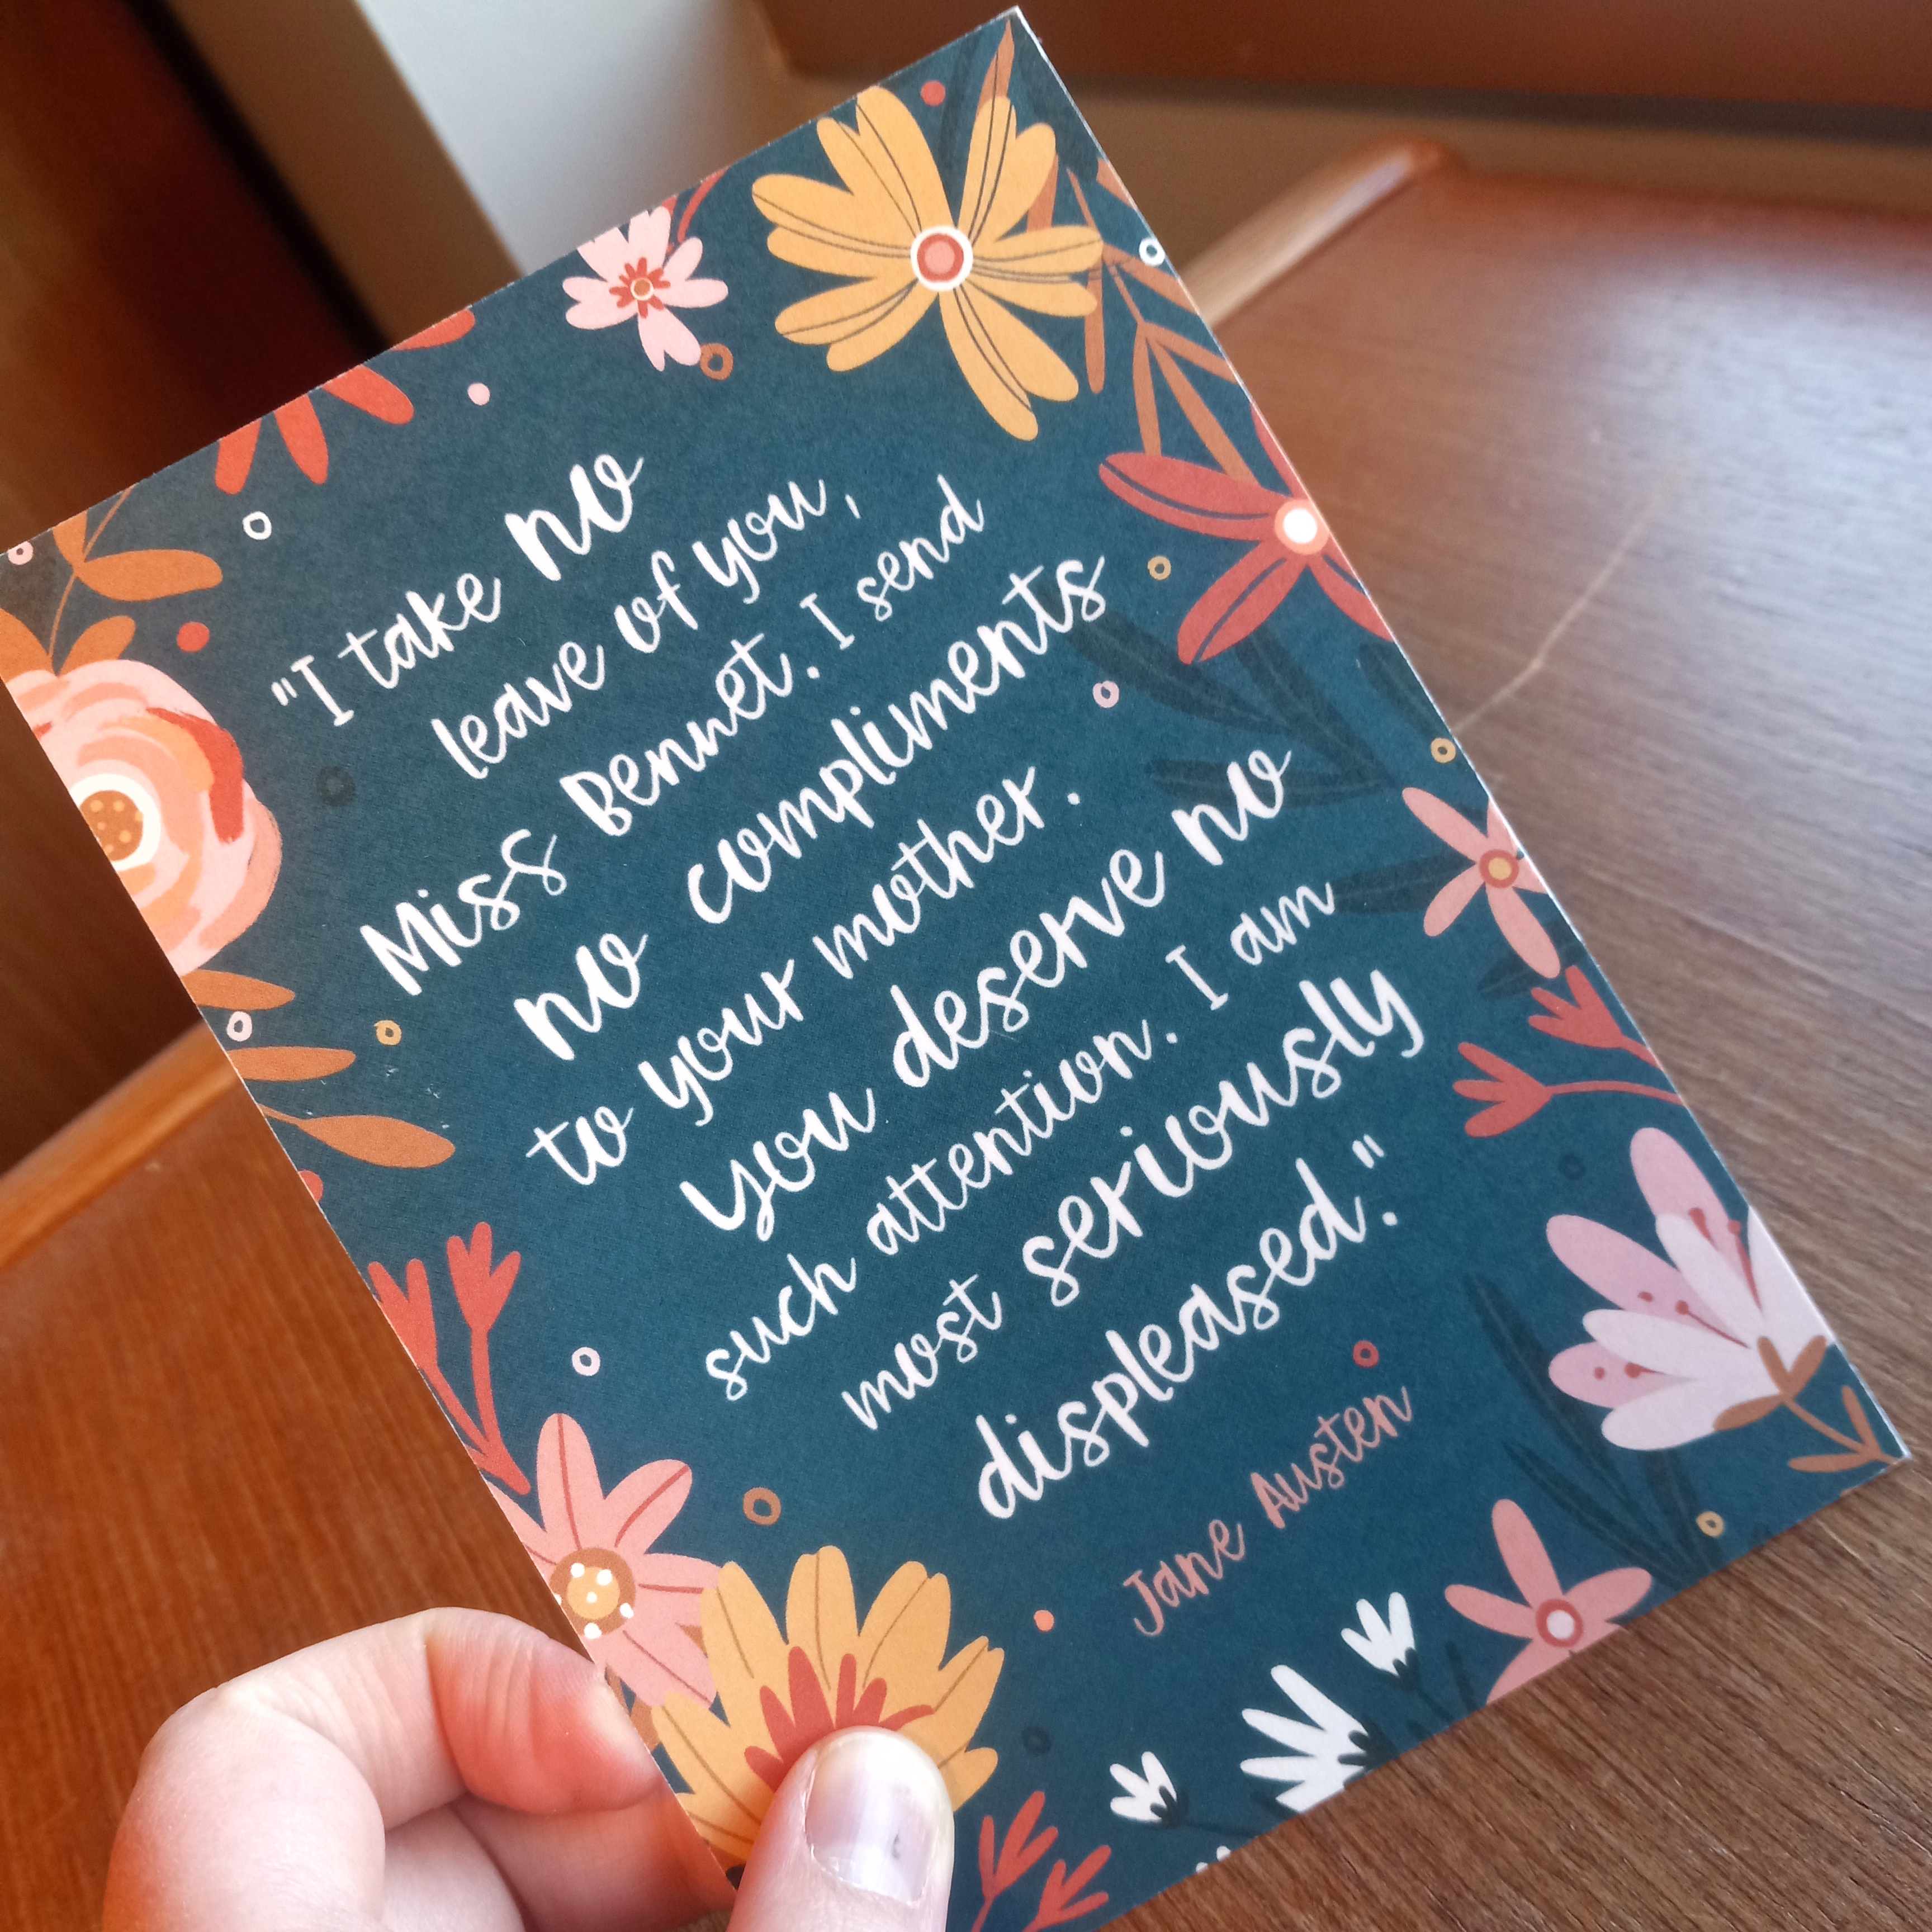 "I take no
leave of you,
Miss Bennet. I send
no compliments
to your mother.
you deserve no
such attention. I am
most seriously
displeased."
Jane Austen